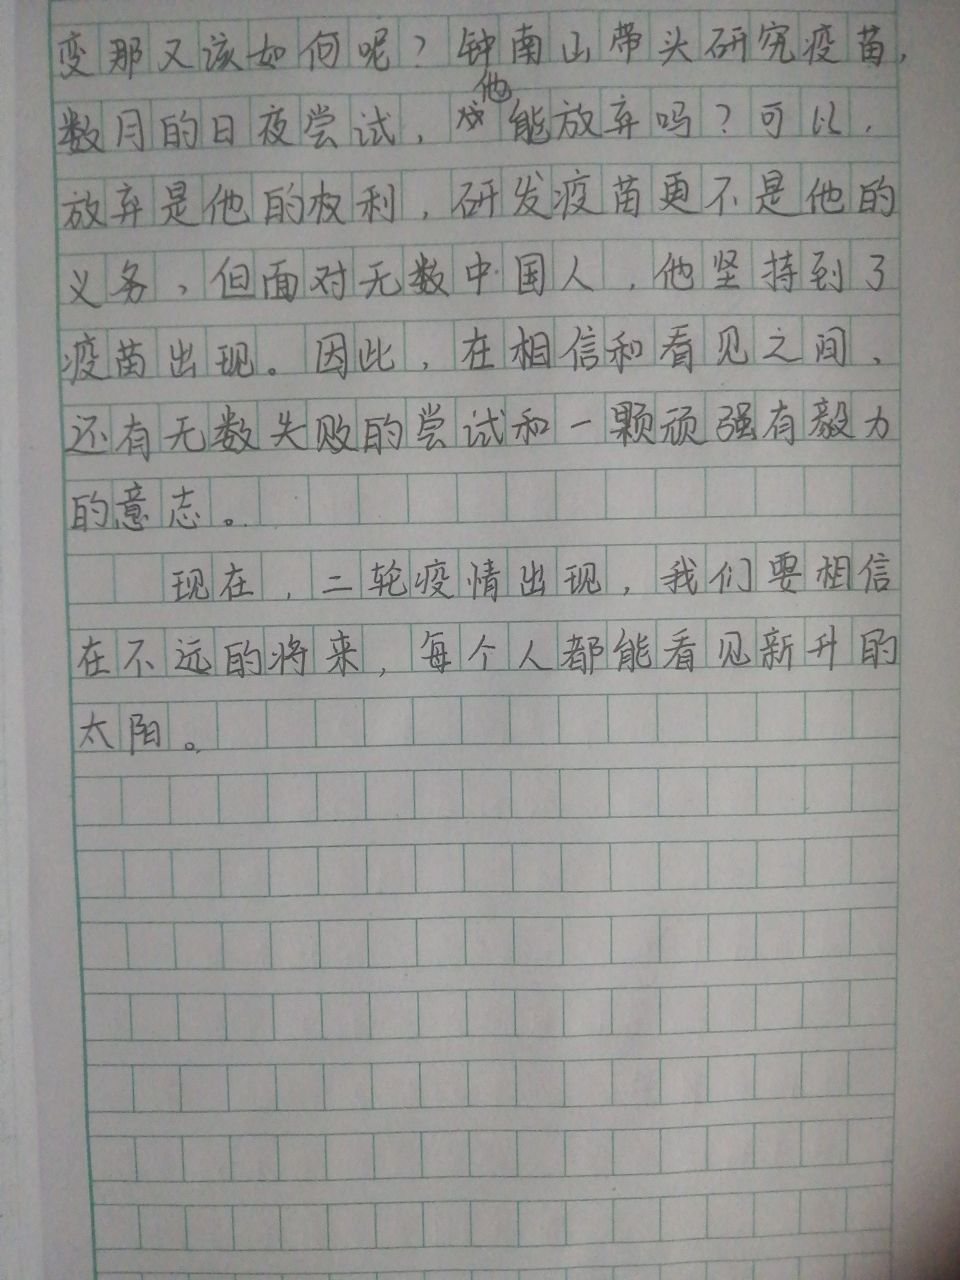 变那又该如何呢？钟南山带头研究疫苗，
数月的日夜尝试，他能放弃吗？可以，
放弃是他的权利，研发疫苗更不是他的
义务，但面对无数中国人，他坚持到了
疫苗出现。因此，在相信和看见之间，
还有无数失败的尝试和一颗顽强有毅力
的意志。
现在，二轮疫情出现，我们要相信
在不远的将来，每个人都能看见新升的
太阳。